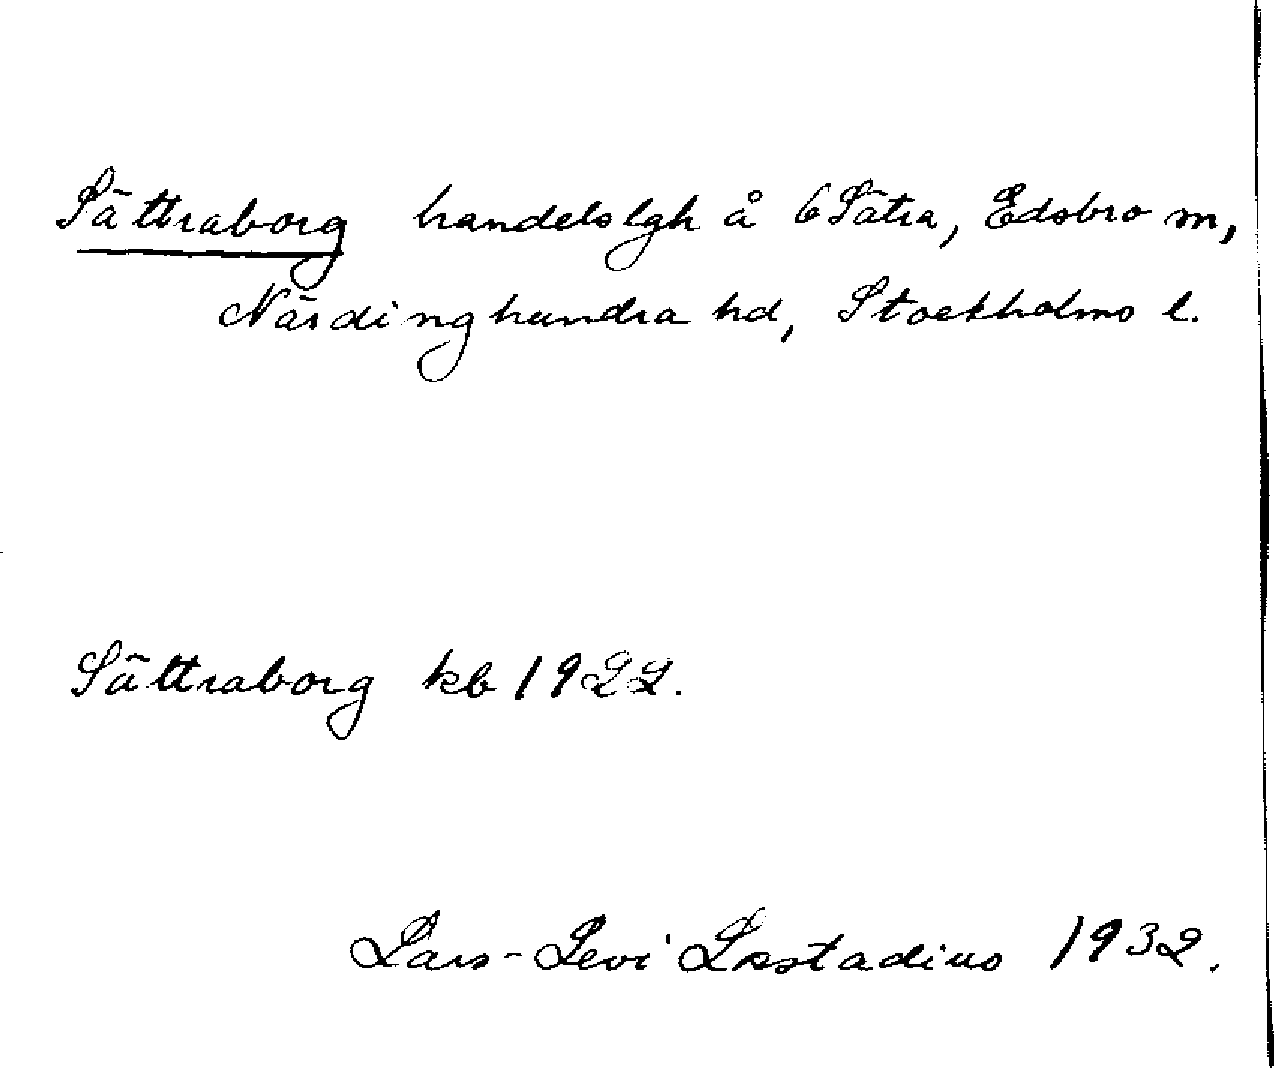 Sättraborg handelslgh å 6 Sätra, Edsbro sn,
Närdinghundra hd, Stockholms l.
Sättraborg kb 1922.
Lars-Levi Læstadius 1932.